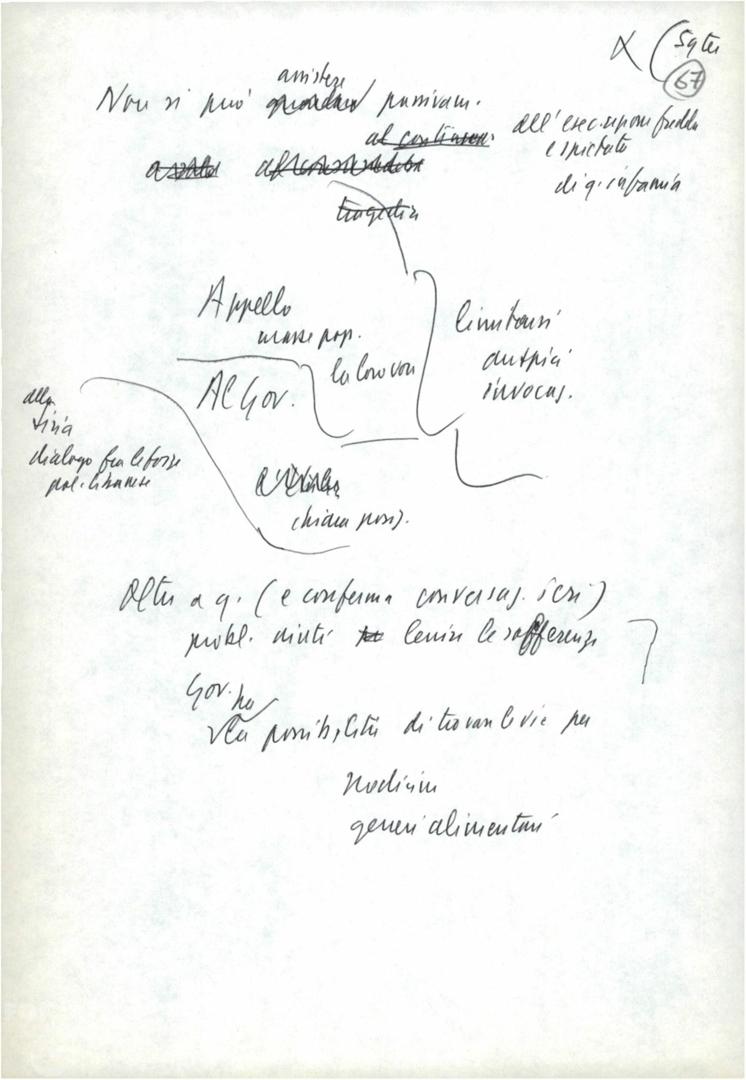 67
assistere
Non si può guardare passivam.
al continuare
all'esecuzione fredda
e spietata
di q. infamia
tragedia
Appello
masse pop.
la loro voce
Al Gov.
limitarsi
auspici
invocaz.
alla
Siria
dialogo fra le forze
pol. libanesi
chiara posiz.
Oltre a q. (e conferma conversaz. ieri)
probl. aiuti lenire le sofferenze
Gov. ha
la possibilità di trovare le vie per
medicine
generi alimentari